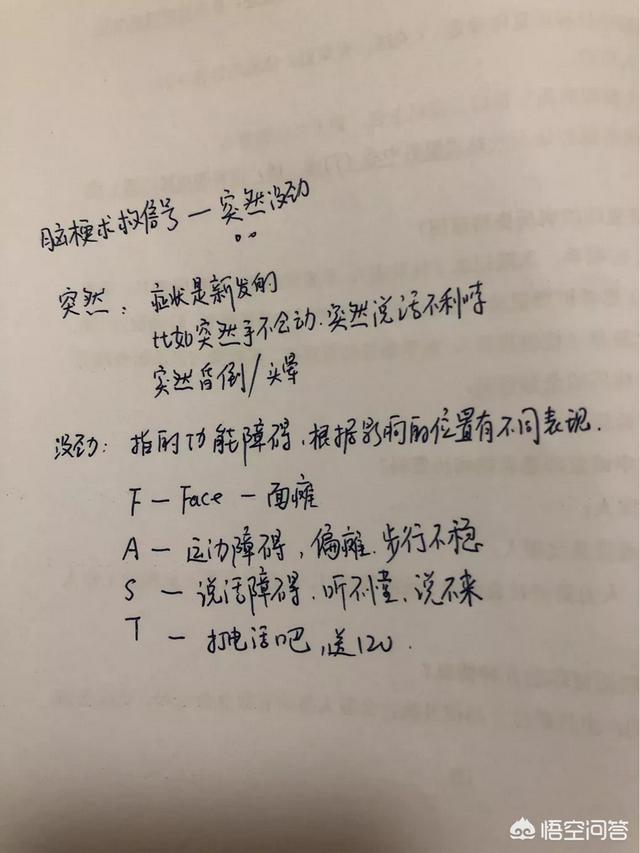 脑梗求救信号—突然没劲
突然：症状是新发的
比如突然手不会动.突然说话不利哮
突然昏倒/头晕
没劲：指的功能障碍,根据影响的位置有不同表现.
F—Face—面瘫
A—运动障碍,偏瘫.步行不稳
S—说话障碍.听不懂、说不来
T—打电话吧,送120.
悟空问答